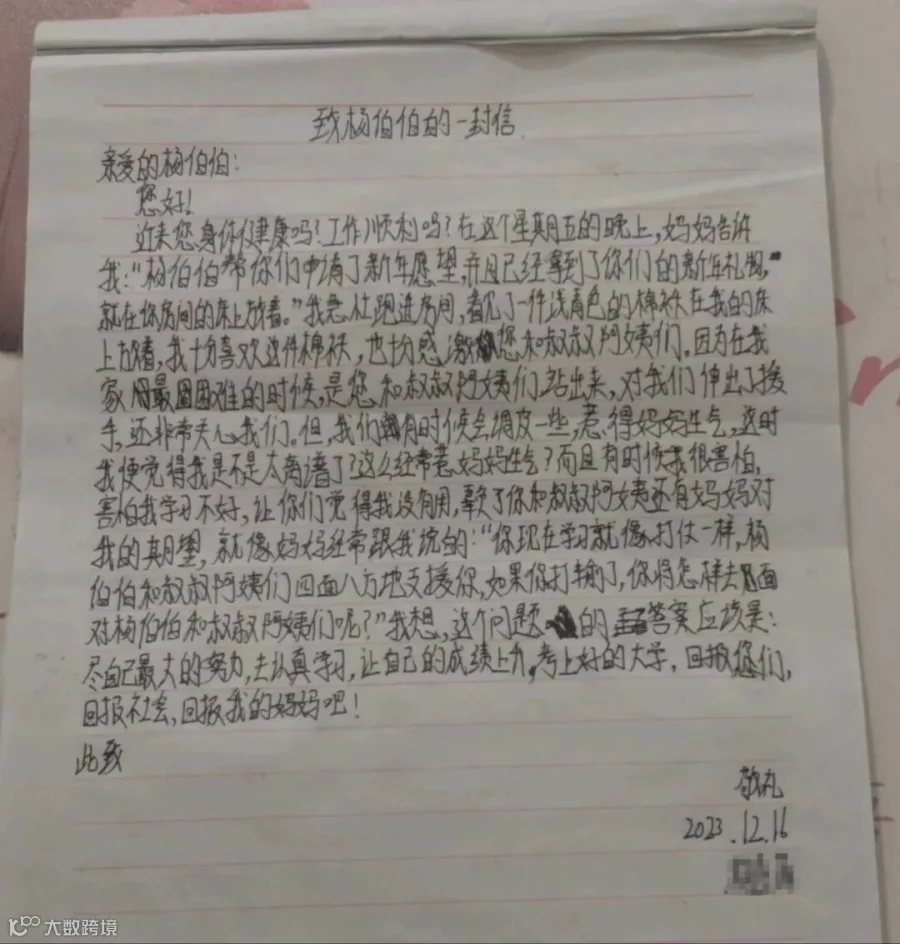 致杨伯伯的一封信
亲爱的杨伯伯:
您好!
近来您身体健康吗?工作顺利吗?在这个星期五的晚上,妈妈告诉
我:“杨伯伯帮你们申请了新年愿望,并且已经拿到了你们的新年礼物,
就在你房间的床上放着。”我急忙跑进房间,看见了一件浅青色的棉袄在我的床
上放着,我十分喜欢这件棉袄,也十分感激您和叔叔阿姨们。因为在我
家最困难的时候,是您和叔叔阿姨们站出来,对我们伸出了援
手,还非常关心我们。但,我们有时候会调皮一些,惹得妈妈生气,这时
我便觉得我是不是太离谱了?这么经常惹妈妈生气?而且有时候我很害怕,
害怕我学习不好,让你们觉得我没有用,辜负了你和叔叔阿姨还有妈妈对
我的期望,就像妈妈经常跟我说的:“你现在学习就像打仗一样,杨
伯伯和叔叔阿姨们四面八方地支援你,如果你打输了,你将怎样去面
对杨伯伯和叔叔阿姨们呢?”我想,这个问题的答案应该是:
尽自己最大的努力,去认真学习,让自己的成绩上升,考上好的大学,回报您们,
回报社会,回报我的妈妈吧!
此致
敬礼
2023.12.16
大数跨境